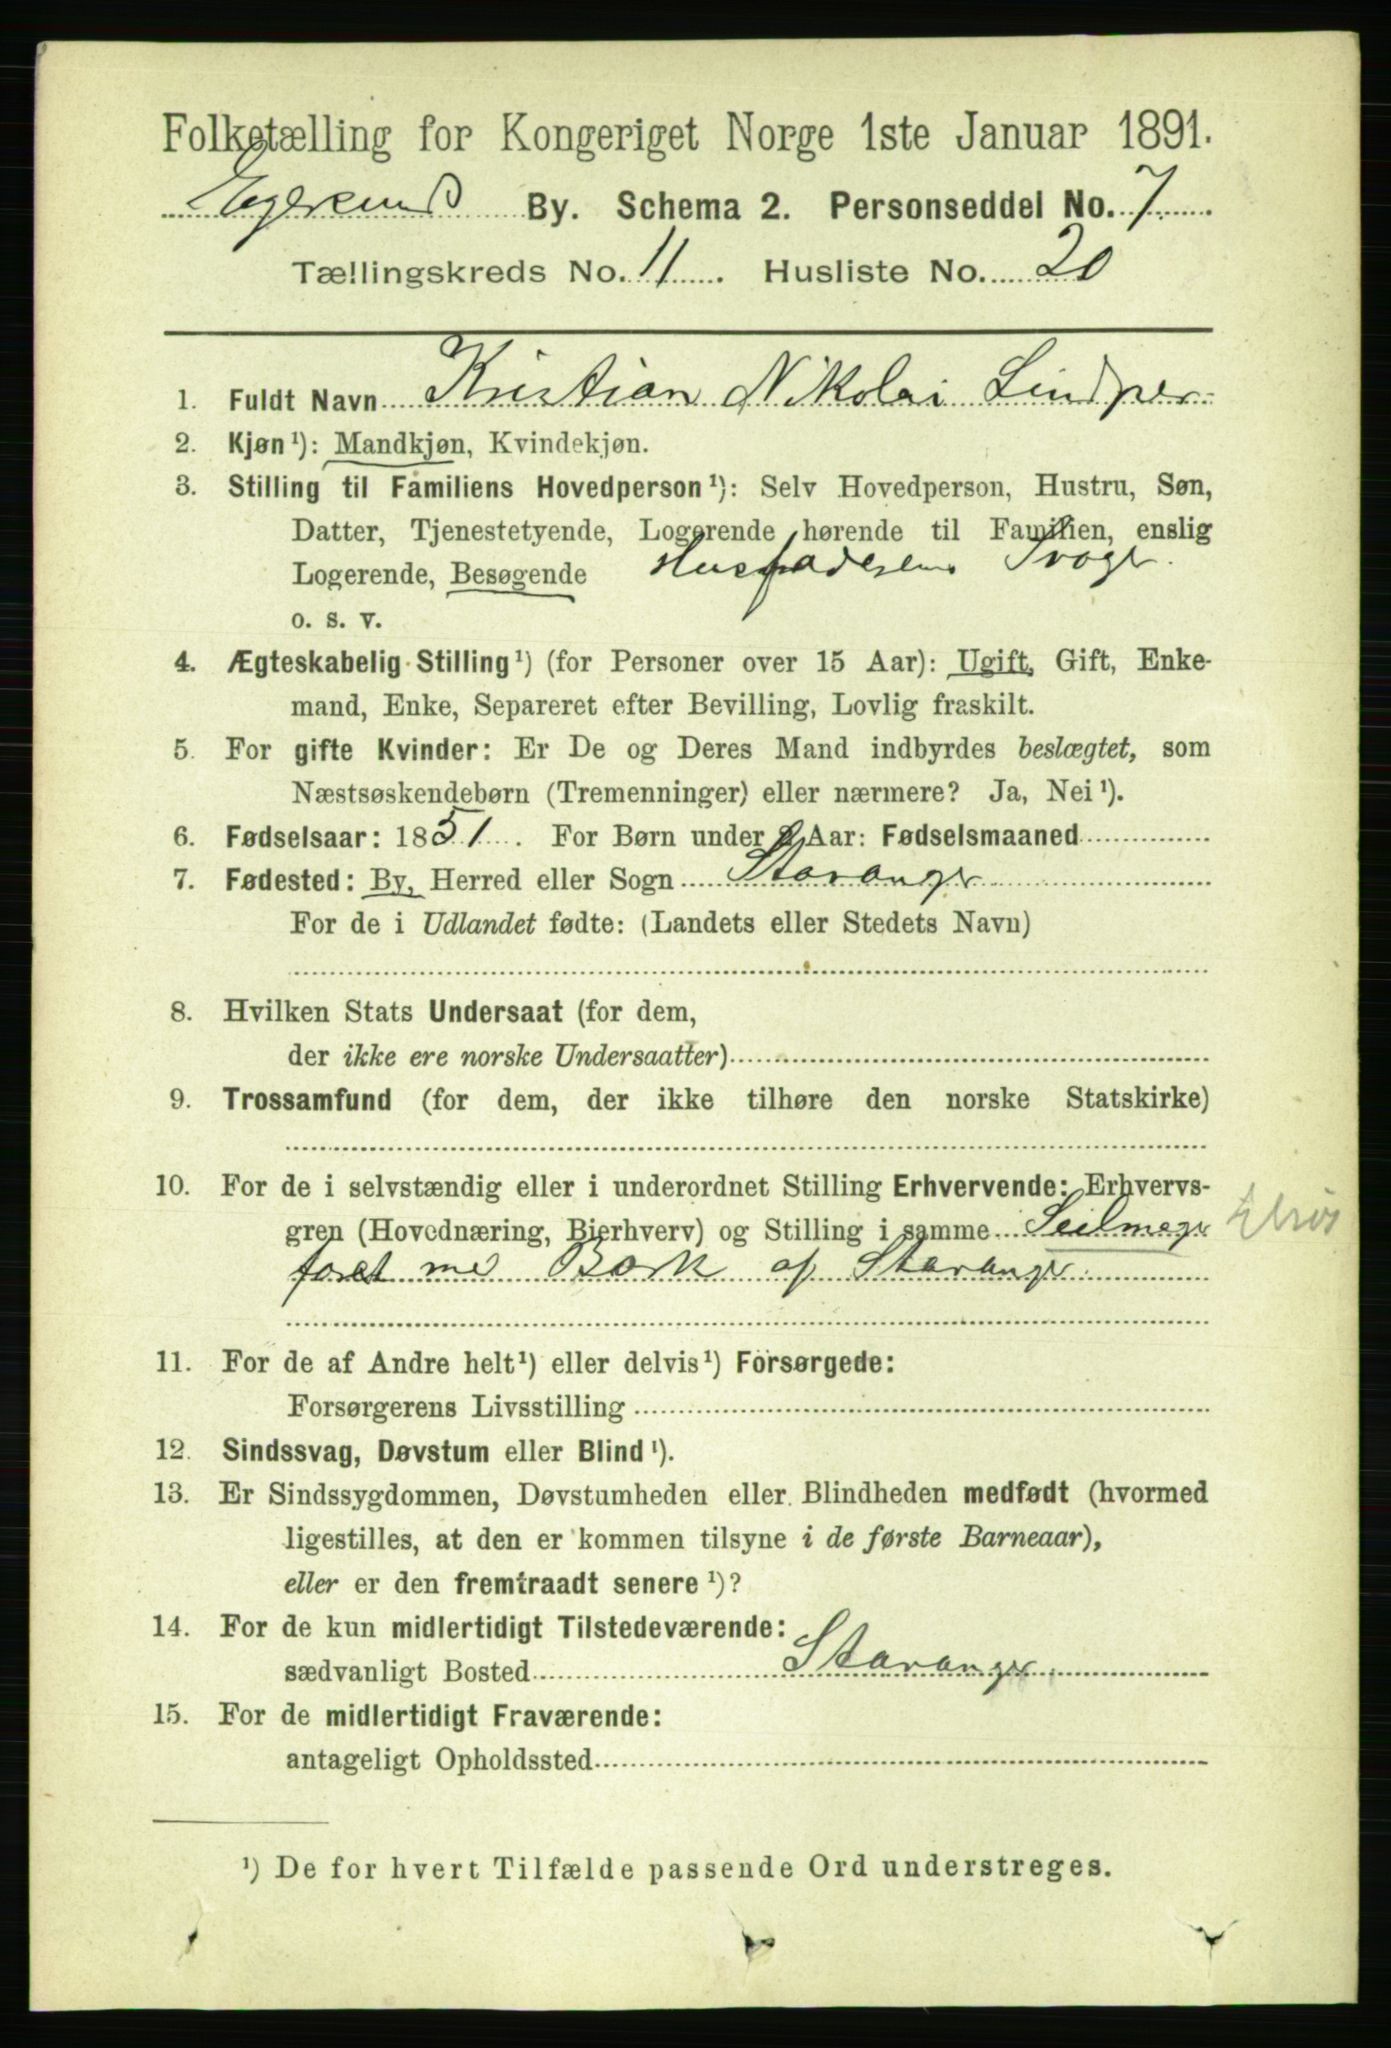 Folketælling for Kongeriget Norge 1ste Januar 1891.
Egersund By. Schema 2. Personseddel No. 7
Tællingskreds No. 11. Husliste No. 20
1. Fuldt Navn Kristian Nikolai
2. Kjøn¹): Mandkjøn, Kvindekjøn.
3. Stilling til Familiens Hovedperson¹): Selv Hovedperson, Hustru, Søn,
Datter, Tjenestetyende, Logerende hørende til Familien, enslig
Logerende, Besøgende Husfaderens Svoger
o. s. v.
4. Ægteskabelig Stilling¹) (for Personer over 15 Aar): Ugift, Gift, Enke-
mand, Enke, Separeret efter Bevilling, Lovlig fraskilt.
5. For gifte Kvinder: Er De og Deres Mand indbyrdes beslægtet, som
Næstsøskendebørn (Tremenninger) eller nærmere? Ja, Nei¹).
6. Fødselsaar: 1851. For Børn under 2 Aar: Fødselsmaaned
7. Fødested: By, Herred eller Sogn Stavanger
For de i Udlandet fødte: (Landets eller Stedets Navn)
8. Hvilken Stats Undersaat (for dem,
der ikke ere norske Undersaatter)
9. Trossamfund (for dem, der ikke tilhøre den norske Statskirke)
10. For de i selvstændig eller i underordnet Stilling Erhvervende: Erhvervs-
gren (Hovednæring, Bierhverv) og Stilling i samme Seilmager
Bark af Stavanger
11. For de af Andre helt¹) eller delvis¹) Forsørgede:
Forsørgerens Livsstilling
12. Sindssvag, Døvstum eller Blind¹).
13. Er Sindssygdommen, Døvstumheden eller Blindheden medfødt (hvormed
ligestilles, at den er kommen tilsyne i de første Barneaar),
eller er den fremtraadt senere¹)?
14. For de kun midlertidigt Tilstedeværende:
sædvanligt Bosted Stavanger
15. For de midlertidigt Fraværende:
antageligt Opholdssted
¹) De for hvert Tilfælde passende Ord understreges.